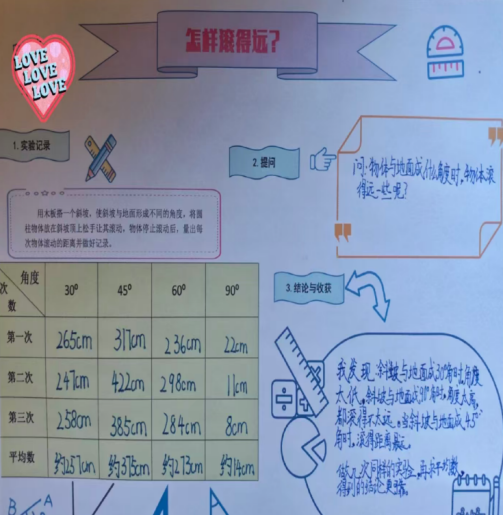 怎样滚得远?
LOVE
LOVE
LOVE
1. 实验记录
用木板搭一个斜坡,使斜坡与地面形成不同的角度,将圆
柱物体放在斜坡顶上松手让其滚动,物体停止滚动后,量出每
次物体滚动的距离并做好记录。
2. 提问
问:物体与地面成什么角度时,物体滚
得远一些呢?
次数 角度 30° 45° 60° 90°
第一次 265cm 317cm 236cm 22cm
第二次 247cm 422cm 298cm 11cm
第三次 258cm 385cm 284cm 8cm
平均数 约257cm 约375cm 约273cm 约14cm
3. 结论与收获
我发现,斜坡与地面成30°角时,角度
太低,斜坡与地面成90°角时,角度太高,
都滚得不太远。当斜坡与地面成45°
角时,滚得距离最远。
做几次同样的实验,再求平均数,
得到的结论更
B A
A